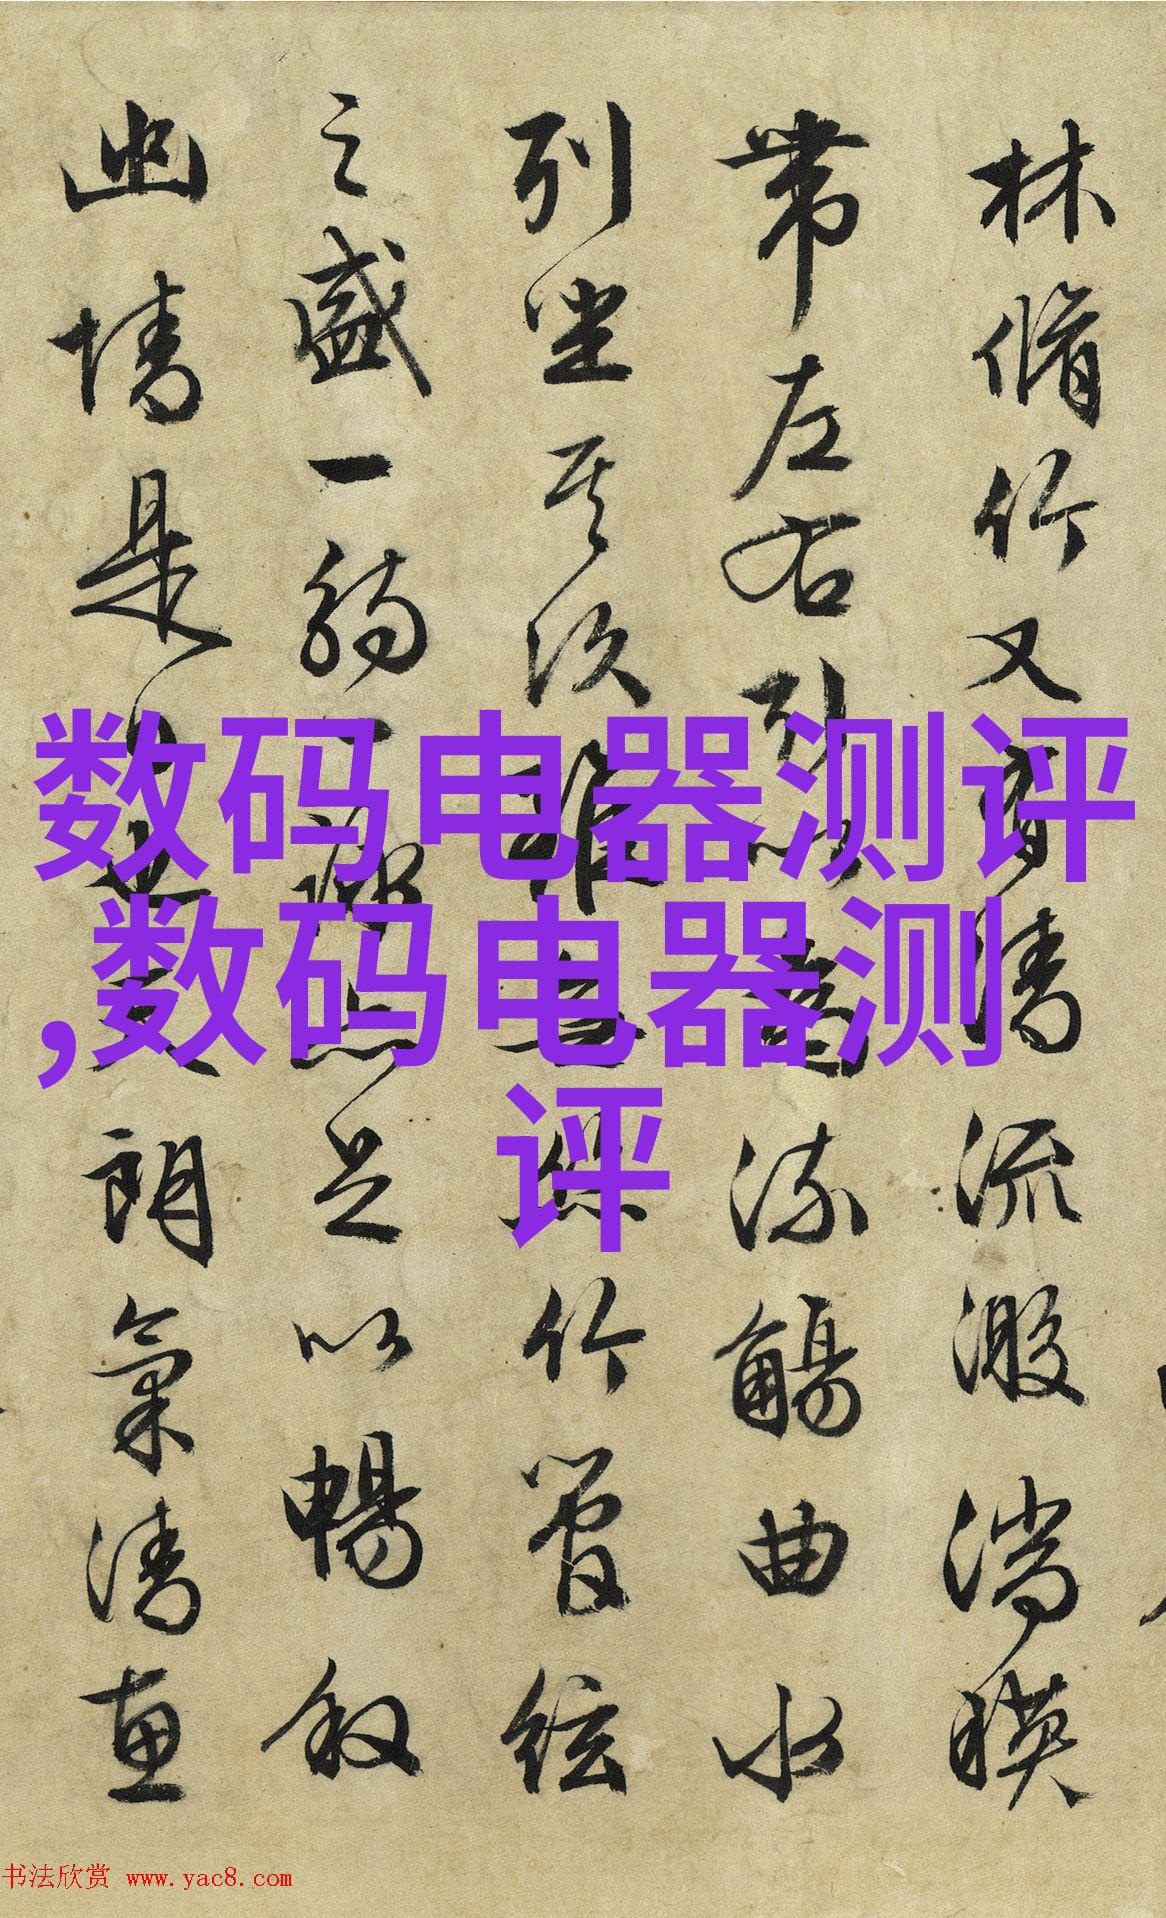 林脩竹又有清流激湍暎
帶左右引以為流觴曲水
列坐其次雖無絲竹管絃
之盛一觴一詠亦足以暢叙
幽情是日也天朗氣清惠
数码电器测评
,数码电器测
评
书法欣赏 www.yac8.com